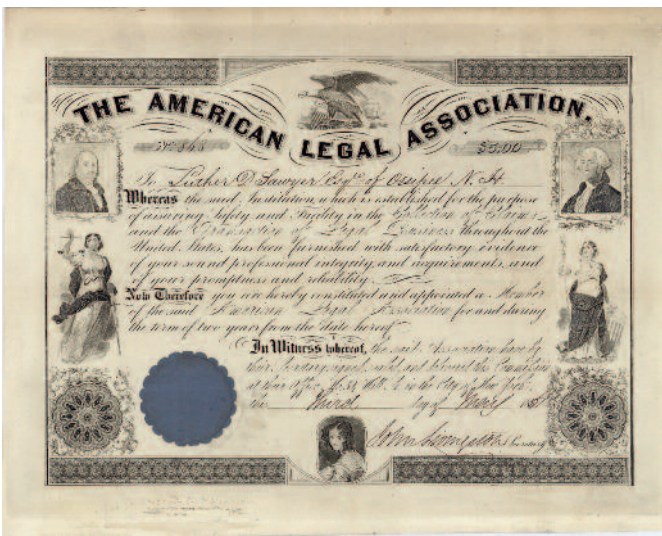 THE AMERICAN LEGAL ASSOCIATION.
No 868 $5.00
To Luther D. Sawyer Esqre of Ossipee N. H.
Whereas the said Institution, which is established for the purpose
of insuring Safety and Facility in the Collection of Claims
and the Transaction of Legal Business throughout the
United States, has been furnished with satisfactory evidence
of your sound professional integrity and acquirements, and
of your promptness and reliability.
Now Therefore you are hereby constituted and appointed a Member
of the said American Legal Association for and during
the term of two years from the date hereof
In Witness whereof, the said Association have by
their Secretary signed, sealed and delivered this
at their Office, Wall St. in the City of New York.
the third day of
John Livingston Secretary